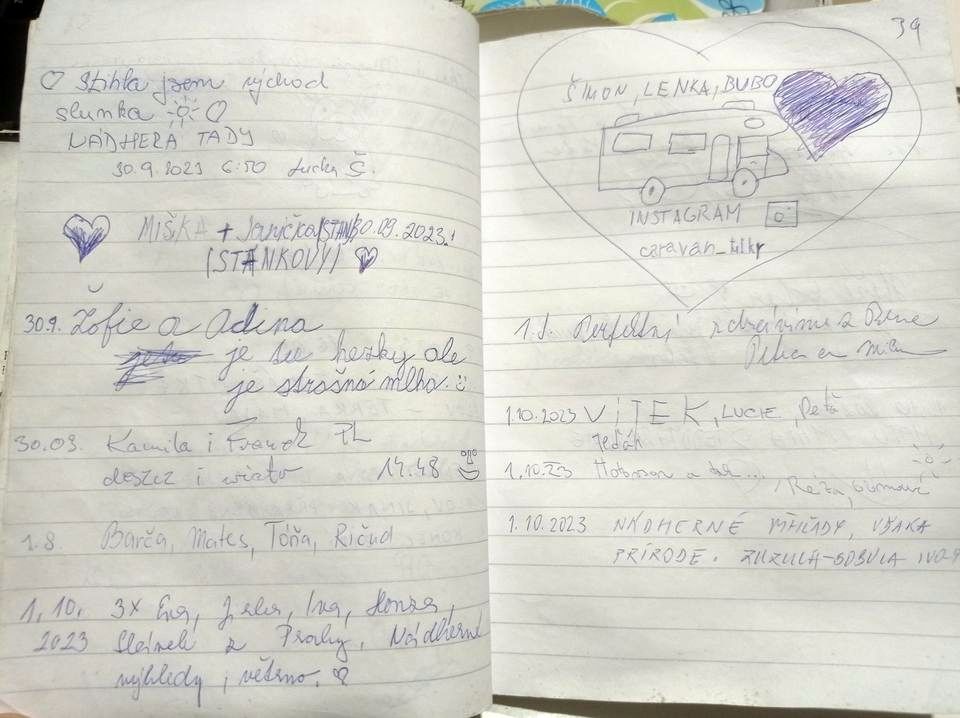 Stihla jsem východ
slunka
NÁDHERA TADY
30.9.2023 6:50 Lucka Š.
MIŠKA + Janička 30.09.2023
(STAŇKOVY)
30.9. Žofie a Adina
je tu hezky ale
je strašná mlha.
30.09. Kamila i Franek PL
deszcz i wiatr 14.48
1.8. Barča, Mates, Tóňa, Ričud
1.10. 3x Eva, Jirka, Iva, Honza,
2023 z Prahy, Nádherné
výhledy, větrno.
39
ŠIMON, LENKA, BUBO
INSTAGRAM
caravan_tulky
1.1. Perfektní
1.10.2023 VíTEK, LUCIE, Peťa
1.10.23
1.10.2023 NÁDHERNÉ VÝHĽADY, VĎAKA
PRÍRODE. ZUZULA-BOBULA IVOR